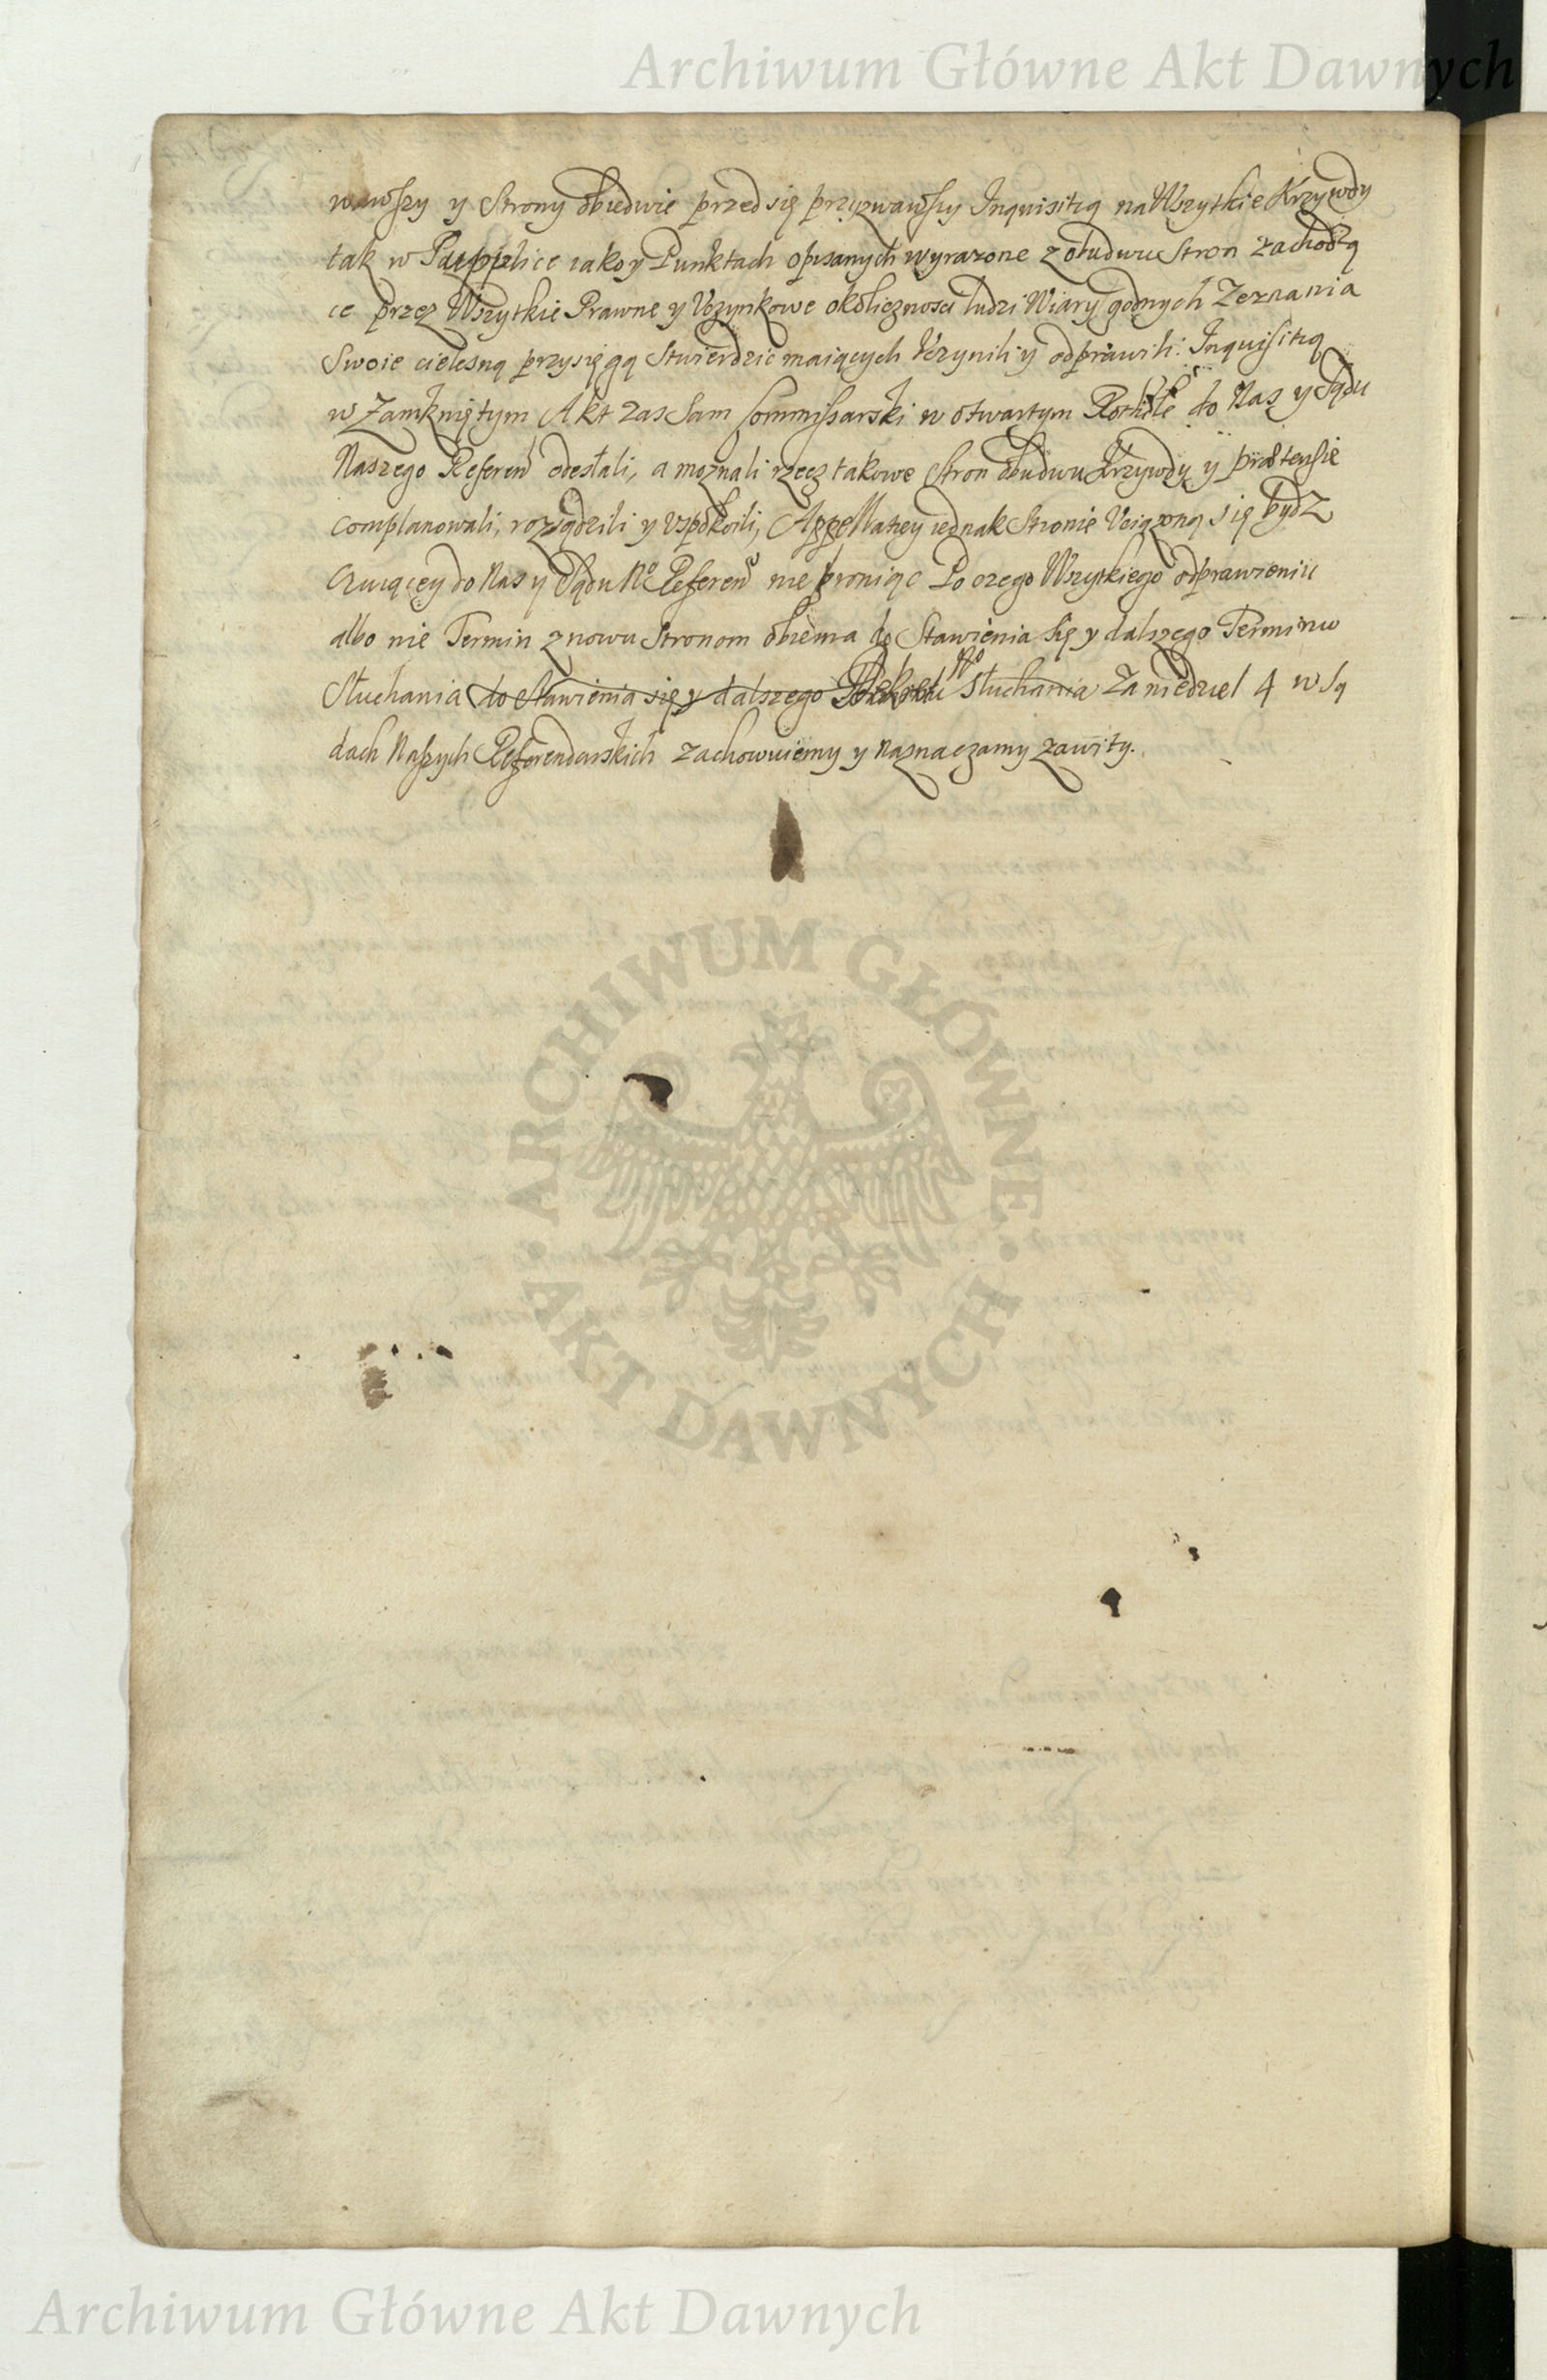 Archiwum Główne Akt Dawnych
wawszy y Strony obiedwie przed się przyzwawszy Inquisitią na Wszytkie Krzywdy
tak w Supplice iako y Punktach opisanych wyrazone z obudwu Stron zachodzą
ce przez Wszytkie Prawne y Uczynkowe okolicznosci ludzi Wiary godnych Zeznania
Swoie cielesną przysięgą Stwierdzic maiących Uczynili y odprawili: Inquisitią
w Zamkniętym Akt zas Sam Commissarski w otwartym Rotule do Nas y Sądu
Naszego Referen odesłali, a moznali rzecz takowe Stron obudwu Krzywdy y praetensie
complanowali, rozsądzili y uspokoili, Appellatiey iednak Stronie Uciązoną się bydz
czuiącey do Nas y Sądu No Referen nie broniąc Po czego Wszytkiego odprawieniu
albo nie Termin znowu Stronom obiema do Stawienia się y dalszego Terminu
Słuchania do stawienia się y dalszego Dekretu No słuchania Za niedziel 4 w Są
dach Naszych Referendarskich zachowuiemy y naznaczamy zawity.
ARCHIWUM GŁÓWNE
AKT DAWNYCH
Archiwum Główne Akt Dawnych